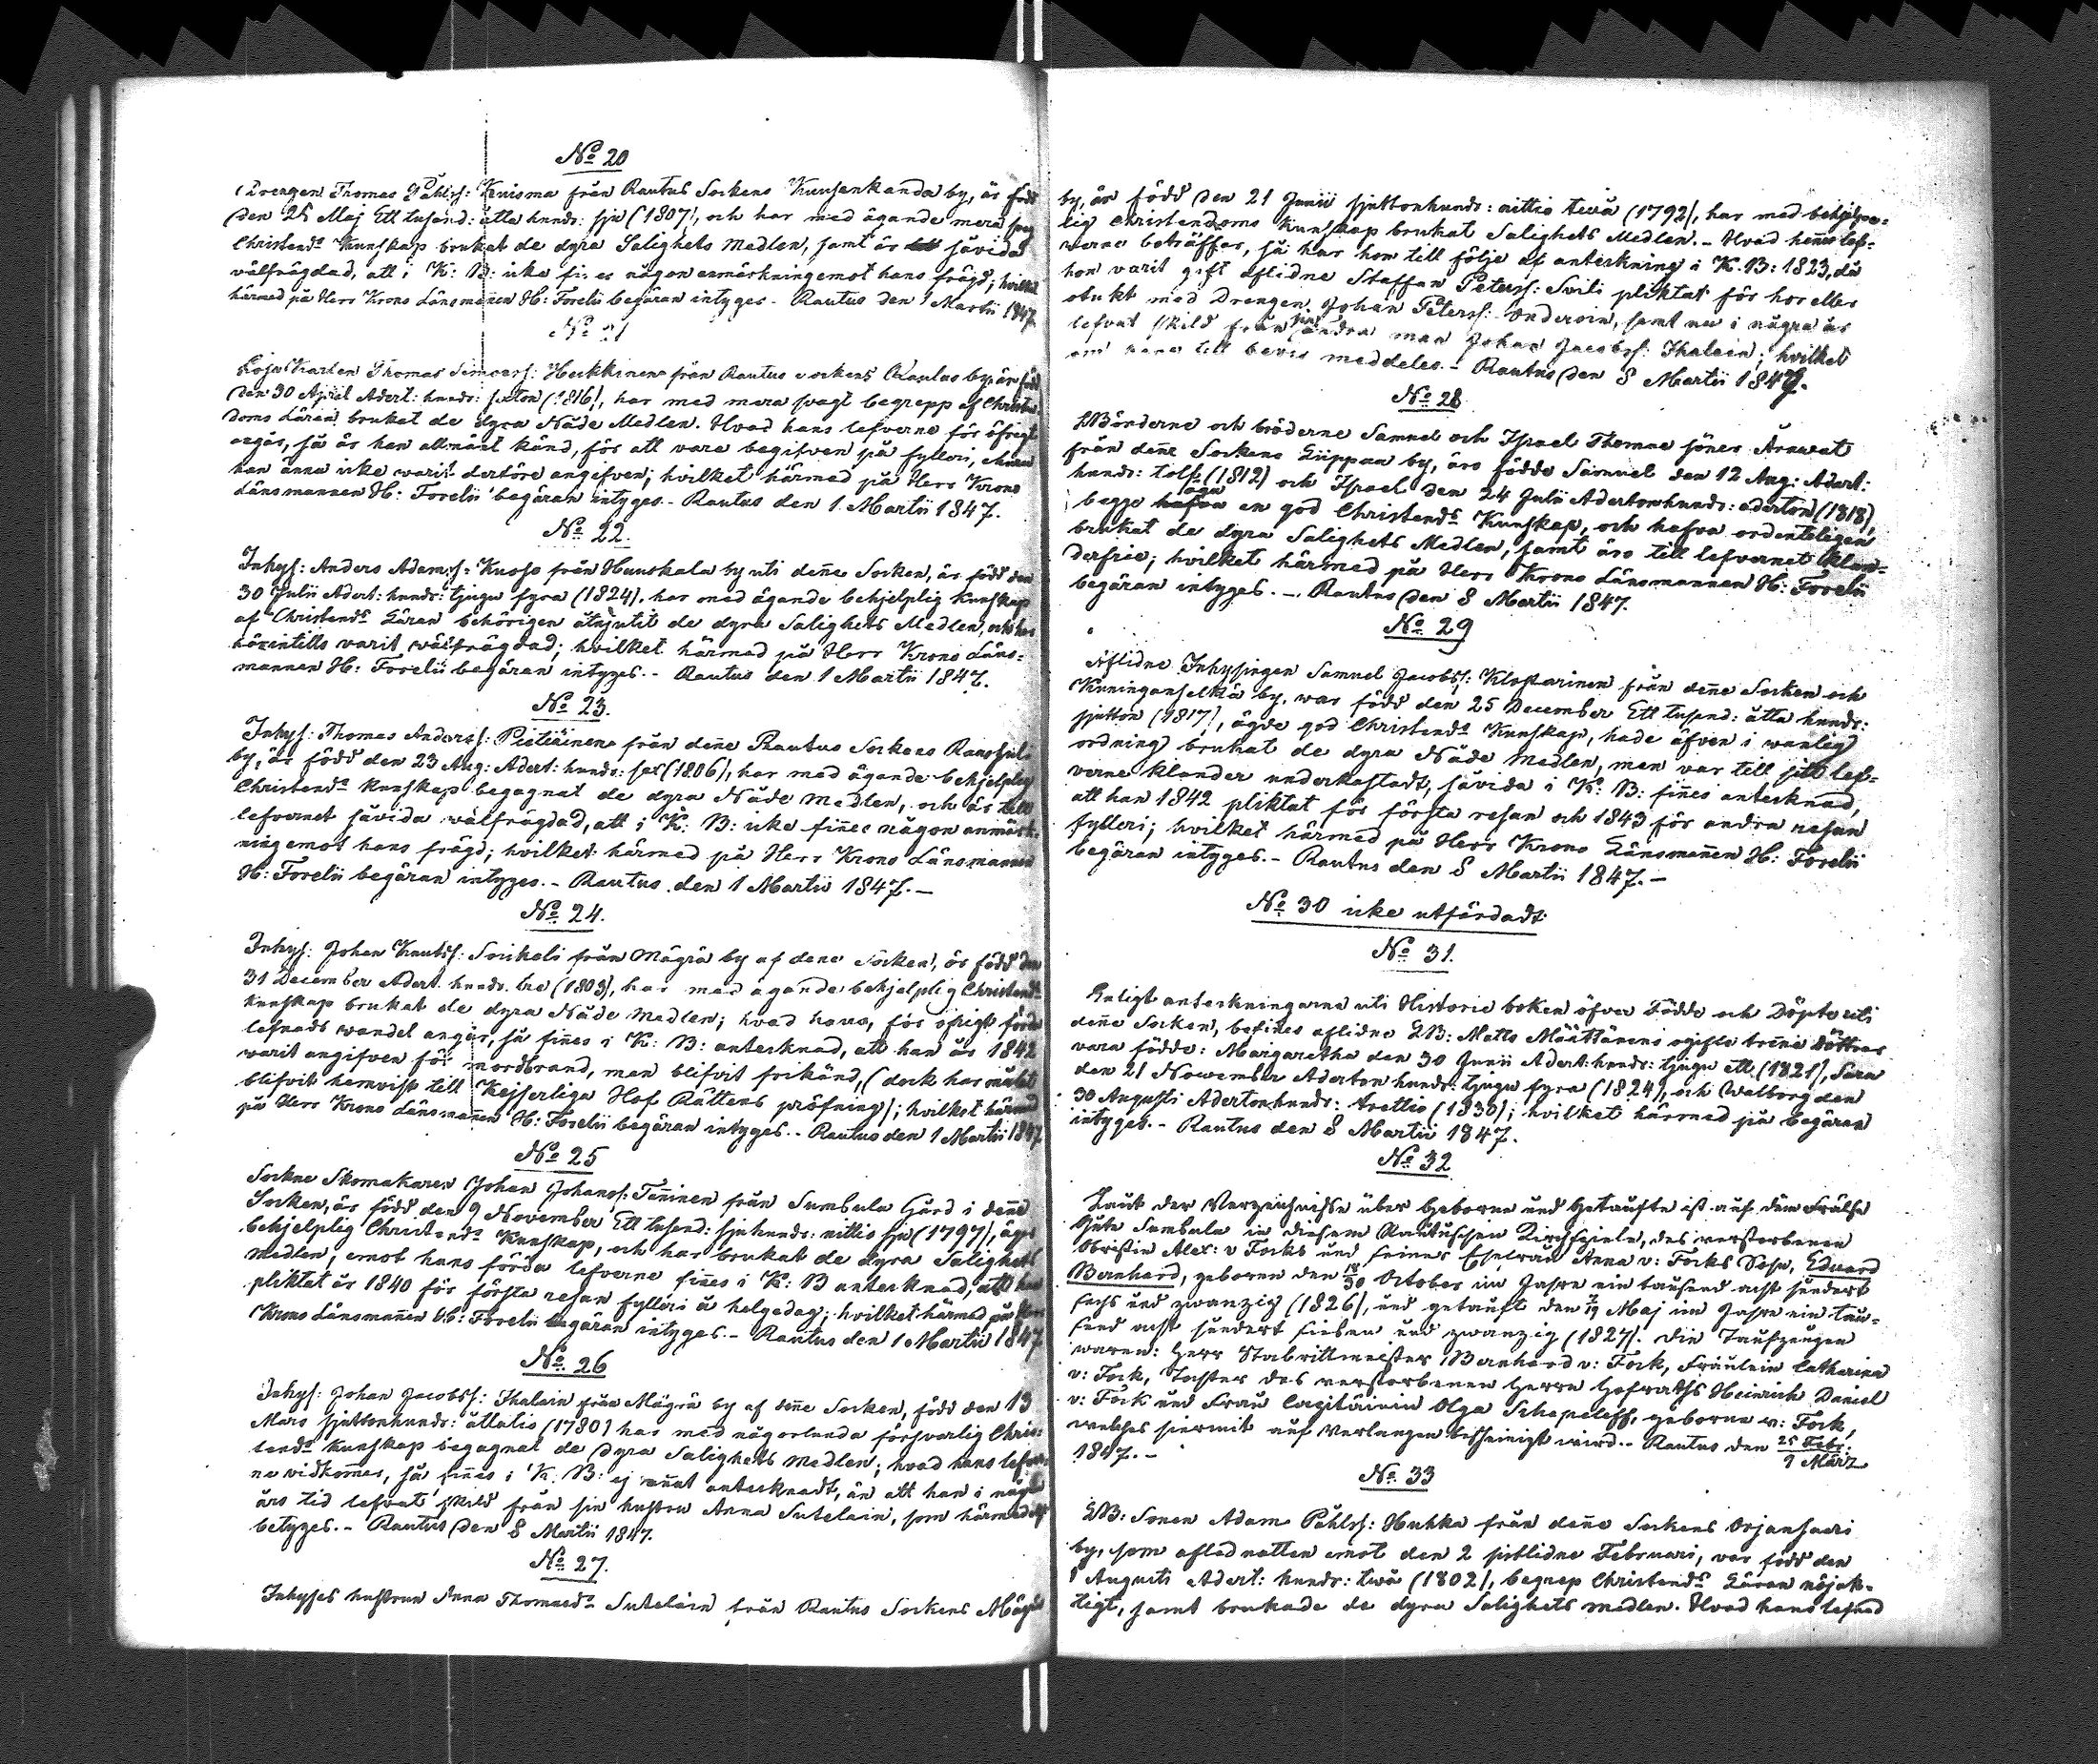 No 20
Drengen Thomas Påhlss: Kuisma från Rautus Sockens Kuusenkanda by, är född
den 25 Maj Ett tusend: åtta hundr: sju (1807), och har med ägande mera svag
Christend:s Kunskap brukat de dyra Salighets Medlen, samt är såvida
välfrägdad, att i K: B: icke fines någon anmärkning emot hans frägd; hvilket
härmed på Herr Krono Länsmannen H: Forelii begäran intyges. - Rautus den 1 Martii 1847.
No 21
Karlen Thomas Simonss: Heikkinen från Rautus Sockens Rautus by, är född
den 30 April Adert: hundr: sexton (1816), har med mera svagt begrepp af Christen-
doms Läran brukat de dyra Nåde Medlen. Hvad hans lefverne för öfrigt
angår, så är han allmänt känd, för att vara begifven på fylleri, ehuru
han ännu icke warit dertöre angifven; hvilket härmed på Herr Krono
Länsmannen H: Forelii begäran intyges. - Rautus den 1 Martii 1847.
No 22.
Inhys: Anders Adamss: Kusso från Huuskala by uti denne Socken, är född den
30 Julii Adert: hundr: tjugu fyra (1824), har med ägande behjelplig Kunskap
af Christend:s Läran behörigen åtnjutit de dyra Salighets Medlen, och har
härintills varit välfrägdad; hvilket härmed på Herr Krono Läns-
mannen H: Forelii begäran intyges. - Rautus den 1 Martii 1847.
No 23.
Inhys: Thomas Anderss: Pietiäinen från denne Rautus Sockens
by, är född den 23 Aug: Adert: hundr: sex (1806), har med ägande behjelplig
Christend:s Kunskap begagnat de dyra Nåde Medlen, och är till
lefvernet såvida wälfrägdad, att i K: B: icke finnes någon anmärk-
ning emot hans frägd; hvilket härmed på Herr Krono Länsmannen
H: Forelii begäran intyges. - Rautus den 1 Martii 1847. -
No 24.
Inhys: Johan Knutss: Soikeli från Mägrä by af denne Socken, är född den
31 December Adert. hundr. tre (1803), har med ägande behjelplig Christend:s
kunskap brukat de dyra Nåde Medlen; hvad hans, för öfrigt förda
lefnads wandel angår, så fines i K: B: antecknad, att han år 1842
warit angifven för mordbrand, men blifvit frikänd, (dock har målet
blifvit hemvist till Kejserliga Hof Rättens pröfning); hvilket härmed
på Herr Krono Länsmannen H: Forelii begäran intyges. - Rautus den 1 Martii 1847
No 25
Sockne Skomakaren Johan Johanss: Tanninen från Sumbula Gård i denne
Socken, är född den 9 November Ett tusend: sjuhundr: nittio sju (1797), äger
behjelplig Christend:s Kunskap, och har brukat de dyra Salighets
Medlen, emot hans förda lefverne finnes i K: B antecknad, att han
pliktat år 1840 för första resan fylleri å helgedag; hvilket härmed på Herr
Krono Länsmannen H: Forelii begäran intyges. - Rautus den 1 Martii 1847
No 26
Inhys: Johan Jacobss: Ihalain från Mägrä by af denne Socken, född den 13
Mars sjuttonhundr: åttatio (1780) har med någorlunda försvarlig Chris-
tend:s kunskap begagnat de dyra Salighets medlen; hvad hans lefver-
ne vidkommer, så finnes i K. B: ej annat antecknadt, än att han i några
års tid lefvat skild från sin hustru Anna Sutelain, som härmedelst
betyges. - Rautus den 8 Martii 1847.
No 27.
Inhyses hustrun Anna Thomasd:r Sutelain från Rautus Sockens Mägrä
by, är född den 21 Junii sjuttonhundr: nittio twå (1792), har med behjelpe-
lig Christendoms kunskap brukat Salighets Medlen. - Hvad hennes lef-
werne beträffar, så har hon till följe af anteckning i K. B: 1823, då
hon varit gift aflidne Staffan Peterss: Svili pliktat för hor eller
otukt med Drengen Johan Peterss: Ondersin, samt nu i några år
lefvat skild från sin andra man Johan Jacobss: Ihalain; hvilket
till bevis meddeles. - Rautus den 8 Martii 1847.
No 28
Bönderne och bröderne Samuel och Israel Thomae söner Ärnwat
från denne Sockens Liippua by, äro födde Samuel den 12 Aug: Adert:
hundr: tolf (1812) och Israel den 24 Julii Adertonhundr: aderton (1818),
begge äga en god Christend:s Kunskap, och hafva ordenteligen
brukat de dyra Salighets Medlen, samt äro till lefvernet klan-
derfrie; hvilket härmed på Herr Krono Länsmannen H: Forelii
begäran intyges. - Rautus den 8 Martii 1847.
No 29
Aflidne Inhysingen Samuel Jacobss: Kloparinen från denne Socken och
Kuninganselkä by, war född den 25 December Ett tusend: åtta hundr:
sjutton (1817), ägde god Christend:s Kunskap, hade äfven i wanlig
ordning brukat de dyra Nåde Medlen, men var till sitt lef-
verne klander underkastadt, såvida i K: B: finnes antecknad,
att han 1842 pliktat för första resan och 1843 för andra resan
fylleri; hvilket härmed på Herr Krono Länsmannen H: Forelii
begäran intyges. - Rautus den 8 Martii 1847. -
No 30 icke utfärdadt.
No 31.
Enligt anteckningarne uti Historie boken öfver Födde och Döpte uti
denne Socken, befines aflidne LB: Matts Määttänens ogifte trene döttrar
vara födde: Margaretha den 30 Junii Adert: hundr: tjugu ett (1821), Sara
den 21 Nowember Aderton hundr: tjugu fyra (1824), och Walborg den
30 Augusti Adertonhundr: trettio (1830); hvilket härmed på begäran
intyges. - Rautus den 8 Martii 1847.
No 32
Laut der Verzeichnisse über Geborne und Getaufte ist auf dem Frälse
Gute Sumbula in diesem Rautuschen Kirchspiele, des verstorbenen
Obristin Alex: v Focks und seiner Ehefrau Anna v: Focks Sohn, Eduard
Bernhard, geboren den 18/30 October im Jahre ein tausend acht hundert
sechs und zwanzig (1826), und getauft den 7/19 Maj im Jahre ein tau-
send acht hundert sieben und zwanzig (1827). Die Taufzeugen
waren: Herr Stabrittmeister Bernhard v: Fock, Fräulein Catharina
v: Fock, Tochter des verstorbenen Herrn Hofraths Heinrich Daniel
v: Fock und Frau Capitäinin Olga Schepeleff, geborne v: Fock,
welches hiermit auf Verlangen bescheinigt wird. - Rautus den 25 Febr:/9 März
1847. -
No 33
LB: Sonen Adam Påhlss: Huhka från denne Sockens Orjansaari
by, som afled natten emot den 2 sistlidne Februari, var född den
1 Augusti Adert: hundr: twå (1802), begrep Christend:s Läran nöjak-
tigt, samt brukade de dyra Salighets medlen. Hvad hans lefnad